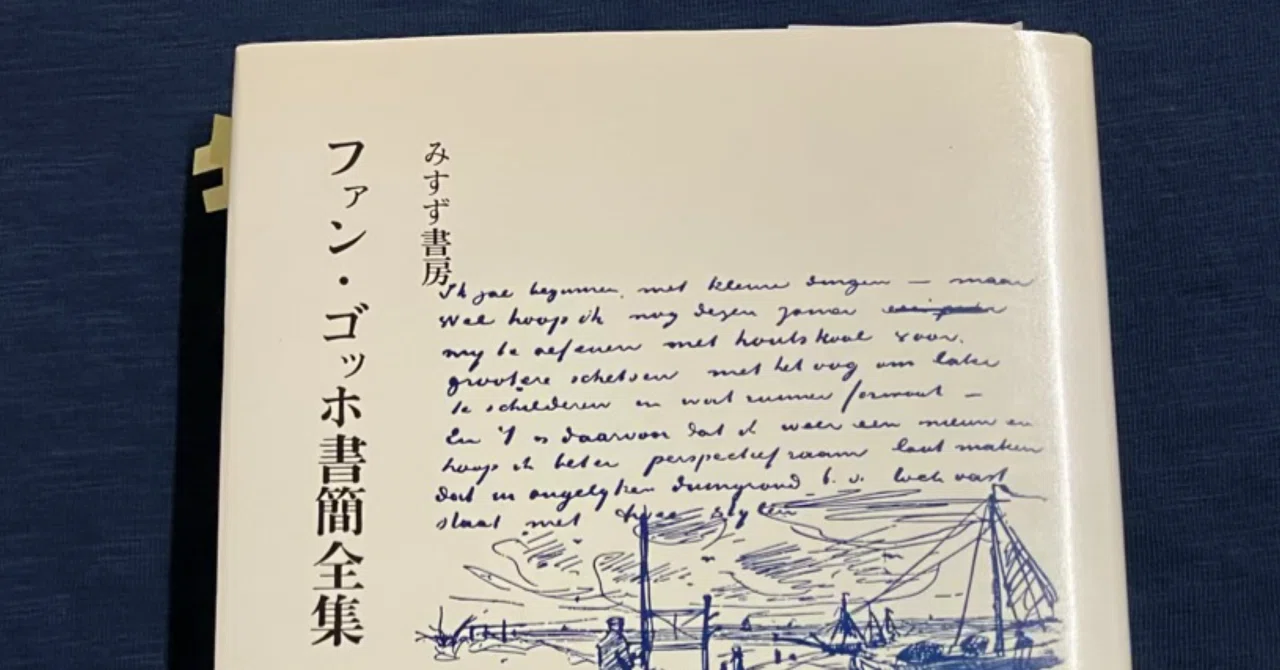 ファン・ゴッホ書簡全集
みすず書房
Ik zal beginnen met kleine dingen – maar
wel hoop ik nog dezen zomer
my te oefenen met houtskool voor
grootere schetsen met het oog om later
te schilderen in wat ruimer formaat –
En 't is daarvoor dat ik weer een nieuw en
hoop ik beter perspectiefraam laat maken
dat in ongelyken duingrond b.v. toch vast
staat met twee stylen